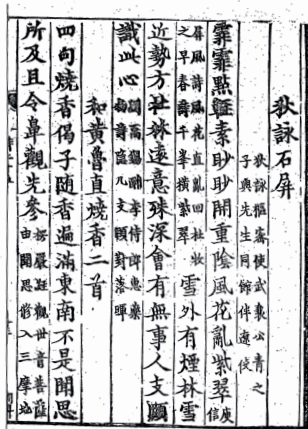 狄詠石屏
狄詠樞密使武襄公青之
子與先生同館伴遼使
霏霏點輕素眇眇開重陰風花亂紫翠
庾信
屏風詩風花直亂回杜牧
之早春詩千峯橫紫翠
雪外有煙林雪
近勢方壯林遠意殊深會有無事人支頤
識此心
酬李侍郎惠藥
支頤對落暉
和黃魯直燒香二首
四句燒香偈子隨香遍滿東南不是聞思
所及且令鼻觀先參
楞嚴經觀世音菩薩
由聞思修入三摩地